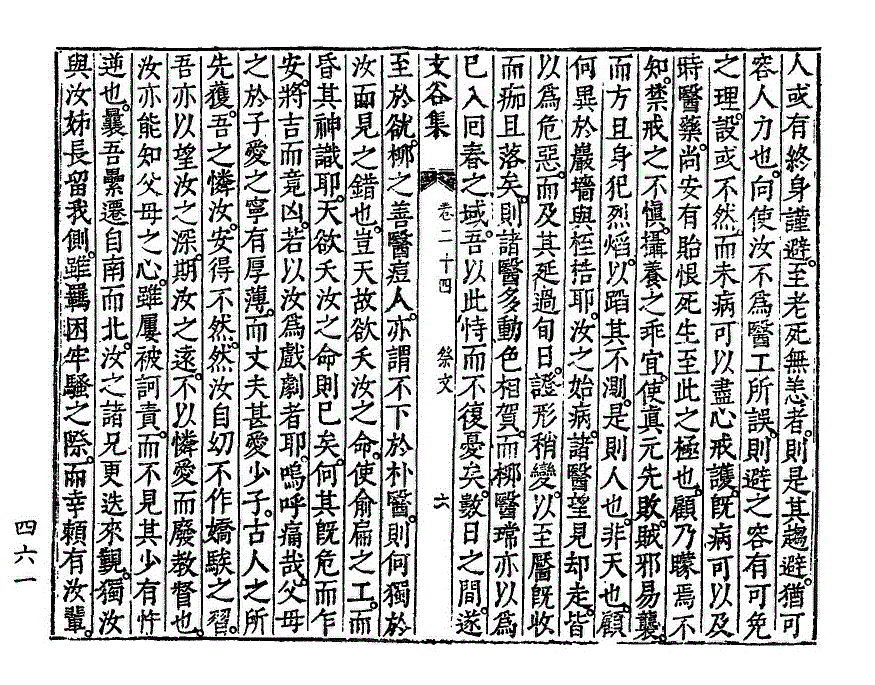 人或有終身謹避。至老死無恙者。則是其趨避。猶可
容人力也。向使汝不爲醫工所誤。則避之容有可免
之理。設或不然。而未病可以盡心戒護。旣病可以及
時醫藥。尚安有貽恨死生至此之極也。顧乃矇焉不
知禁戒之不愼。攝養之乖宜。使眞元先敗。賊邪易襲。
而方且身犯烈焰。以蹈其不測。是則人也。非天也。顧
何異於巖墻與桎梏耶。汝之始病。諸醫望見却走。皆
以爲危惡。而及其延過旬日。證形稍變。以至醫旣收
而痂且落矣。則諸醫多動色相賀。而柳醫瑺亦以爲
已入回春之域。吾以此恃而不復憂矣。數日之間。遂
文谷集
卷二十四
祭文
六
至於欲。柳之善醫痘人。亦謂不下於朴醫。則何獨於
汝而見之錯也。豈天故欲夭汝之命。使俞扁之工。而
昏其神識耶。天欲夭汝之命則已矣。何其旣危而乍
安。將吉而竟凶。若以汝爲戲劇者耶。嗚呼痛哉。父母
之於子愛之寧有厚薄。而丈夫甚愛少子。古人之所
先獲。吾之憐汝。安得不然。然汝自幼不作嬌騃之習。
吾亦以望汝之深。期汝之遠。不以憐愛而廢敎督也。
汝亦能知父母之心。雖屢被訶責。而不見其少有忤
逆也。曩吾纍遷自南而北。汝之諸兄更迭來覲。獨汝
與汝姊長留我側。雖羈困牢騷之際。而幸賴有汝輩。
四六一